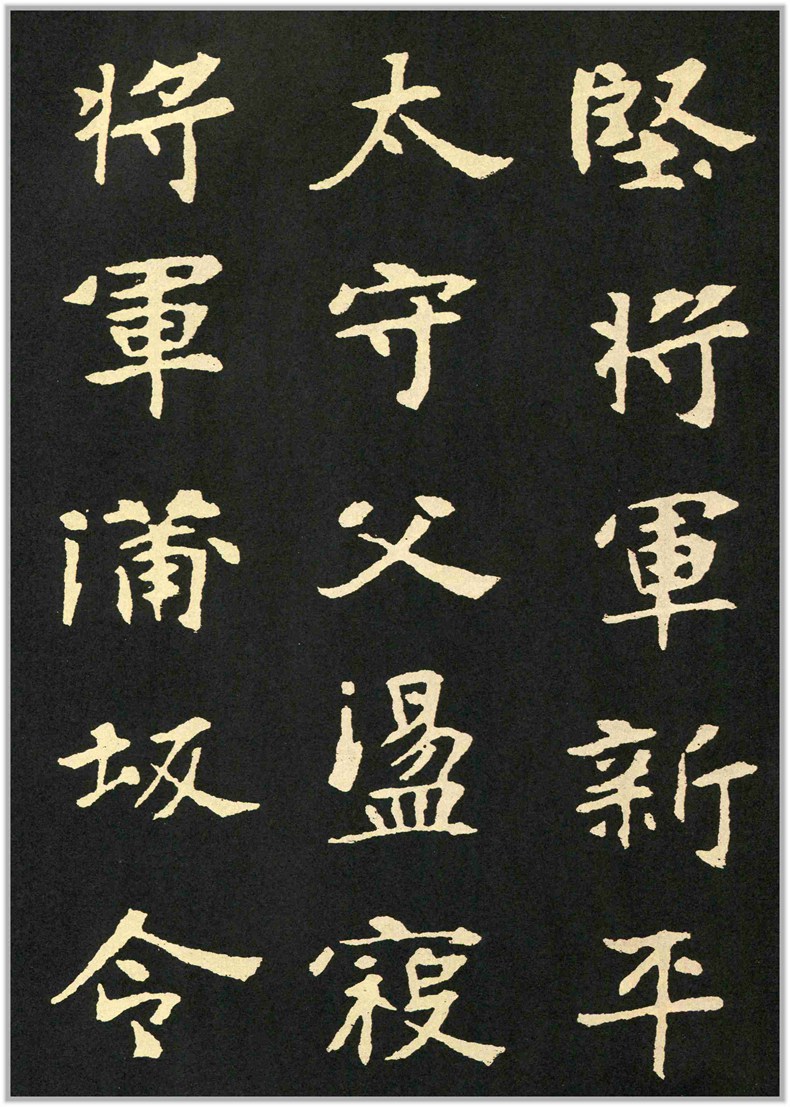 堅將軍新平
太守父盪寇
將軍蒲坂令